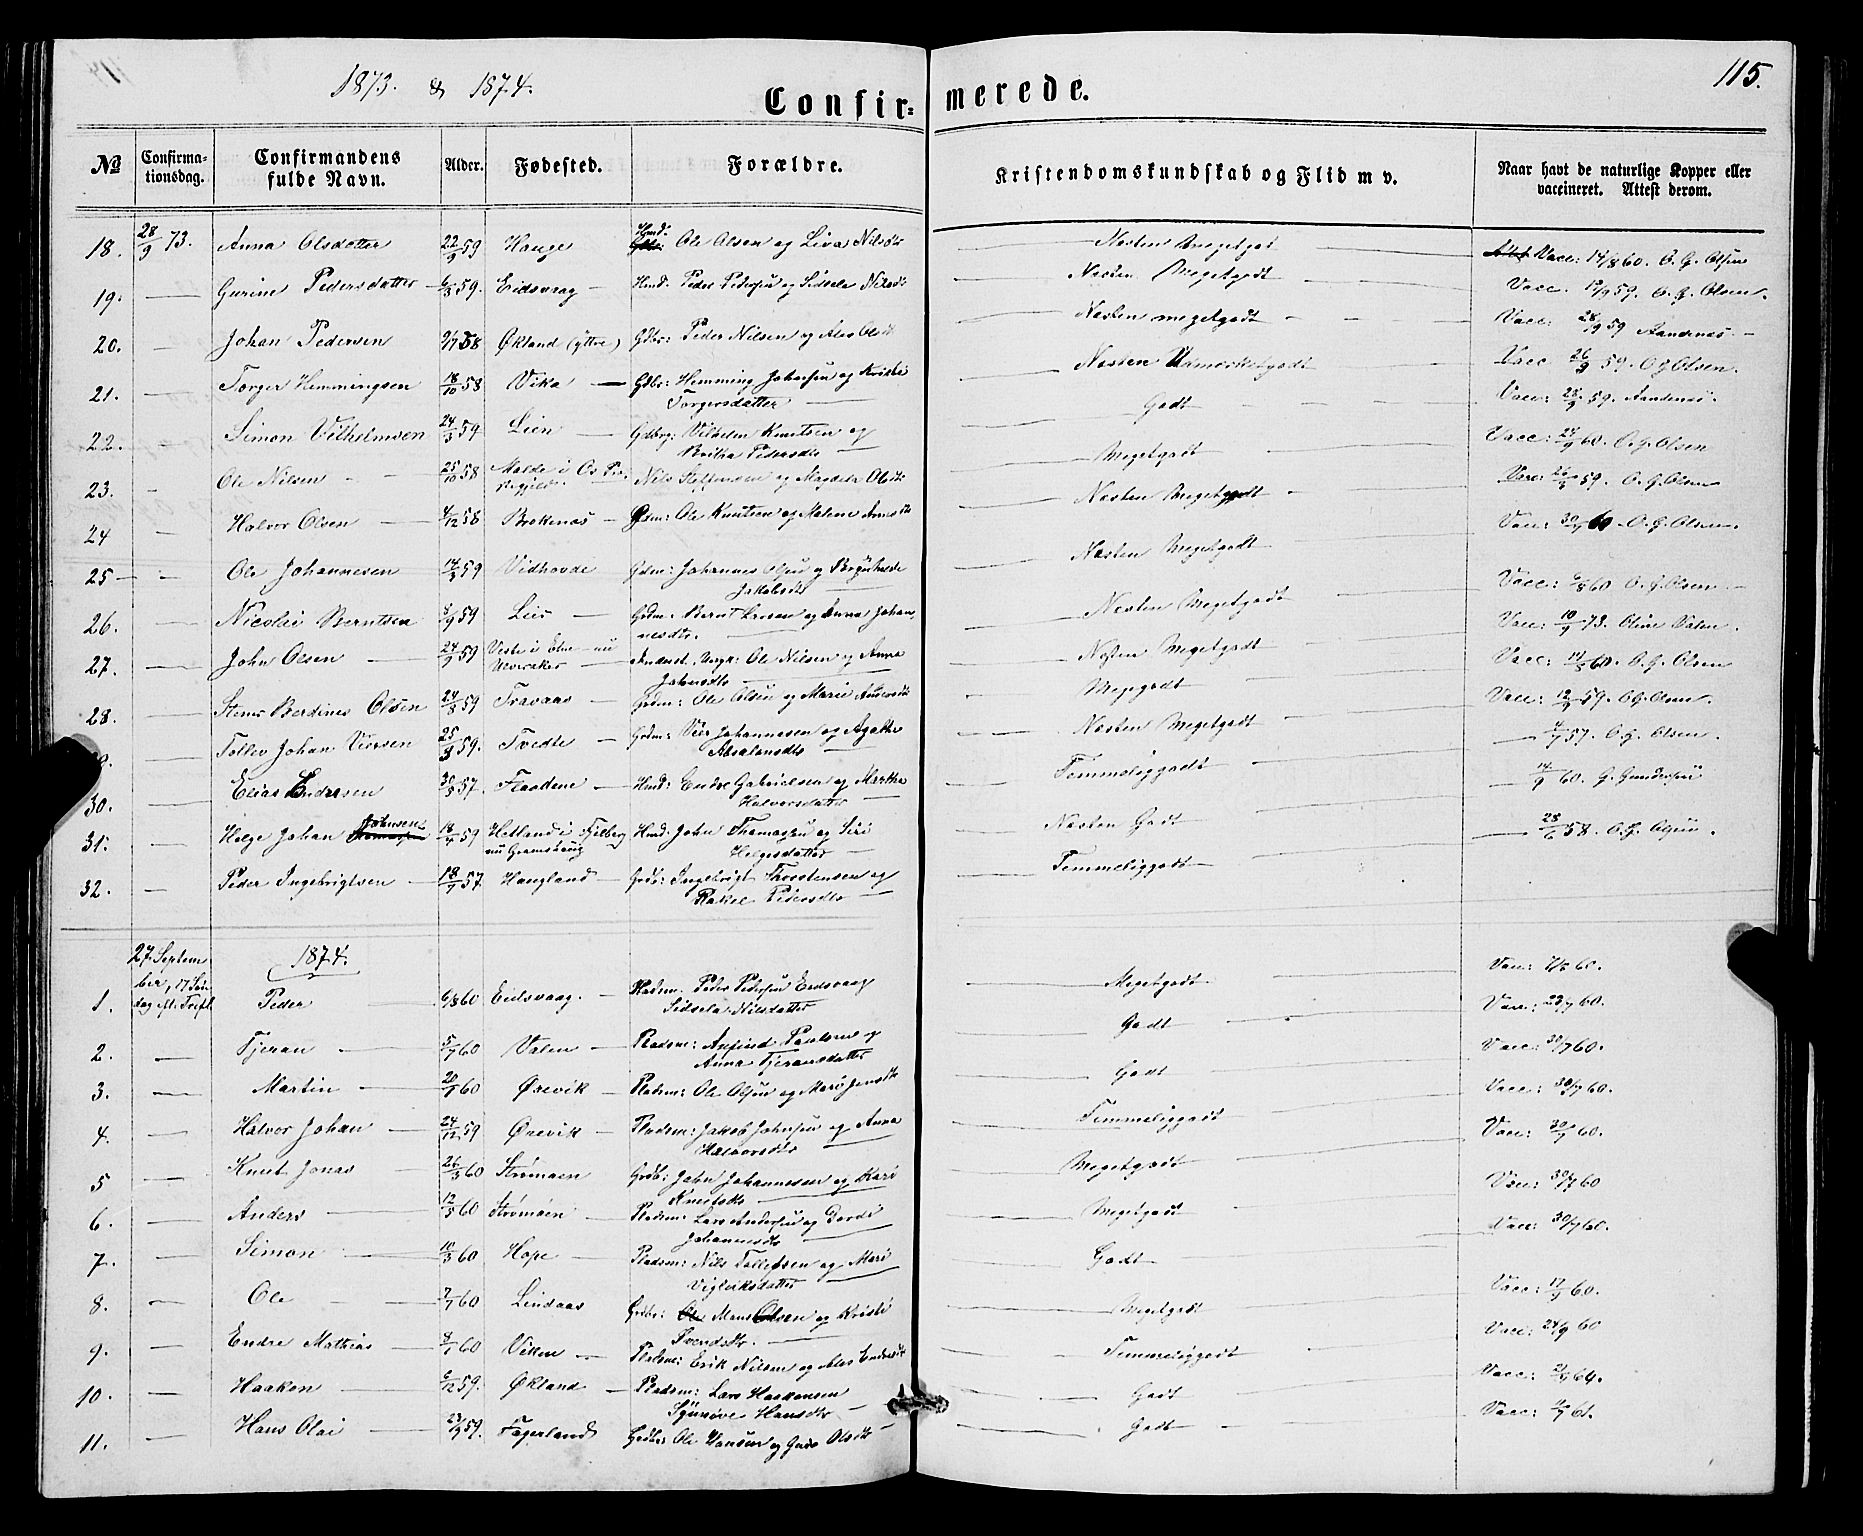 1873. & 1874.
115.
Confir=
merede.
No
Confirma-
tionsdag.
Confirmandens
fulde Navn.
Alder.
Fødested.
Forældre.
Kristendomskundskab og Flid m v.
Naar havt de naturlige Kopper eller
vaccineret. Attest derom.
18. 28/9 73. Anna Olsdatter 22/9 59 Hauge Hmd. Ole Olsen og Liva Nilsdtr Næsten Megetgodt Vacc: 14/8 60. O. G. Olsen
19. Gurine Pedersdatter 6/3 59. Eidsvaag Hmd. Peder Pedersen og Sidsela Nilsdr Næsten Megetgodt Vacc. 59. O. G. Olsen.
20. Johan Pedersen 58 Økland (yttre) Gdbr: Peder Nilsen og Næsten megetgodt Vacc: 28/9 59 Aandenæs
21. Torger Hemmingsen 18/10 58 Vika Gdbr: Hemming Johnsen og Kristi
Torgersdatter Næsten Udmerketgodt Vacc 26/9 59. O G Olsen.
22. Simon Vilhelmsen 24/3 59 Lien Gdbrg: Vilhelm Knutsen og
Britha Pedersdtr Godt Vacc: 28/9 59. Aandenæs.
23. Ole Nilsen 25/10 58 Malde i Os Pre-
stegjeld. Nils Steffensen og Magdela Olsdtr Megetgodt Vacc: 24/9 60. O. G. Olsen
24 Halvor Olsen 4/12 58 Brekenæs Gdm: Ole Knutsen og Malene Næsten Megetgodt Vacc: 59. O. G. Olsen
25 Ole Johannesen 14/3 59 Vidhovde Gdm: Johannes Olsen og
Jakobsdtr Næsten Megetgodt Vacc: 60. O. G. Olsen.
26. Nicolai Berntsen 59 Leir Grdm. Bernt og Anna Johan-
nesdtr. Næsten Megetgodt Vacc: 60 O. G. Olsen
27. John Olsen 24/9 59 i Etne nu
Ole Nilsen og Anna
Johnsdtr Næsten Megetgodt Vacc: 10/9 73.
28. Berdines Olsen 24/8 59 Travaas Grdm: Ole Olsen og Marie Megetgodt Vacc: 14/8 60. O. G. Olsen
Tollev Johan Viersen 25/3 59. Tvedte Grdm: Vier Johannesen og Agathe
Absalonsdtr Næsten Megetgodt Vacc: 59. O G Olsen.
30. Elias Endresen 57. Flaadene Hmd: Endre Gabrielsen og Martha
Halvorsdatter Temmeliggodt 57. O. G. Olsen.
31. Helge Johan Johnsen 59 Hetland i Fjelberg
nu Hmd. John Thomassen og Siri
Helgesdatter Næsten Godt 14/9 60. G. Gundersen
32. Peder Ingebrigtsen 18/9 57. Haugland Grdb: Ingebrigt Thorstensen og
Rakel Pedersdtr Temmeliggodt 28/6 58. O. G. Olsen.
27 Septem-
ber, 17 Søn-
dag eft. Trefl.
1874.
1. Peder 6/8 60 Eidsvaag. Pladsm. Peder Pedersen Eidsvaag
Sidsela Nilsdatter Megetgodt Vacc: 60.
2. Tjeran 5/7 60 Valen Pladsm: Anfind Paulsen og
Anna Tjeransdatter Godt Vacc: 60.
3. Martin 60 Ørevik Pladsm: Ole Olsen og Mari Godt Vacc: 30/7 60.
4. Halvor Johan 24/12 59 Ørevik Pladsm: Jakob Johnsen og Anna
Halvorsdtr Temmeliggodt Vacc: 30/7 60.
5 Knut Jonas 26/3 60 Strømøen Grdb: John Johannessen og Kari
Knutsdtr Megetgodt Vacc: 30/7 60.
6. Anders 12/5 60 Strømøen Pladsm: Lars Andersen og Dorde
Johannesdtr Megetgodt Vacc: 30/7 60
7. Simon 10/3 60 Hope Pladsm: Nils Tollefsen og Mari
Viglaiksdatter Godt Vacc: 30/7 60.
8. Ole 7/7 60 Lindaas Grdbr: Mons Olsen og Kristi
Svendsdtr. Megetgodt Vacc: 60.
9. Endre Mathias 60 Viken Pladsm: Erik Nilsen og Temmeliggodt Vacc: 24/9 60
10. Haakon 6/12 59. Økland Pladsm: Lars Haakonsen
Synnøve Hansdtr Godt Vacc: 64.
11. Hans Olai 59. Fagerland Grdbr: Ole Hansen og Olsdtr Godt Vacc: 61.